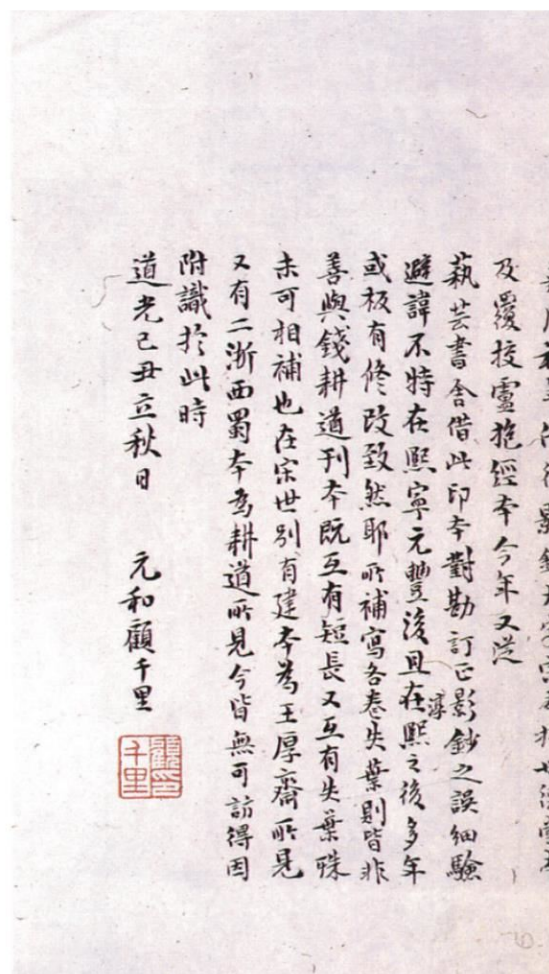 及覆挍盧抱經本今年又從
藝芸書舍借此印本對勘訂正影鈔之誤細驗
避諱不特在熙寧元豐後且在淳熙之後多年
或板有修改致然耶所補寫各卷失葉則皆非
善與錢耕道刊本既互有短長又互有失葉殊
未可相補也在宋世別有建本為王厚齋所見
又有二浙西蜀本為耕道所見今皆無可訪得因
附識於此時
道光己丑立秋日 元和顧千里
顧印
千里